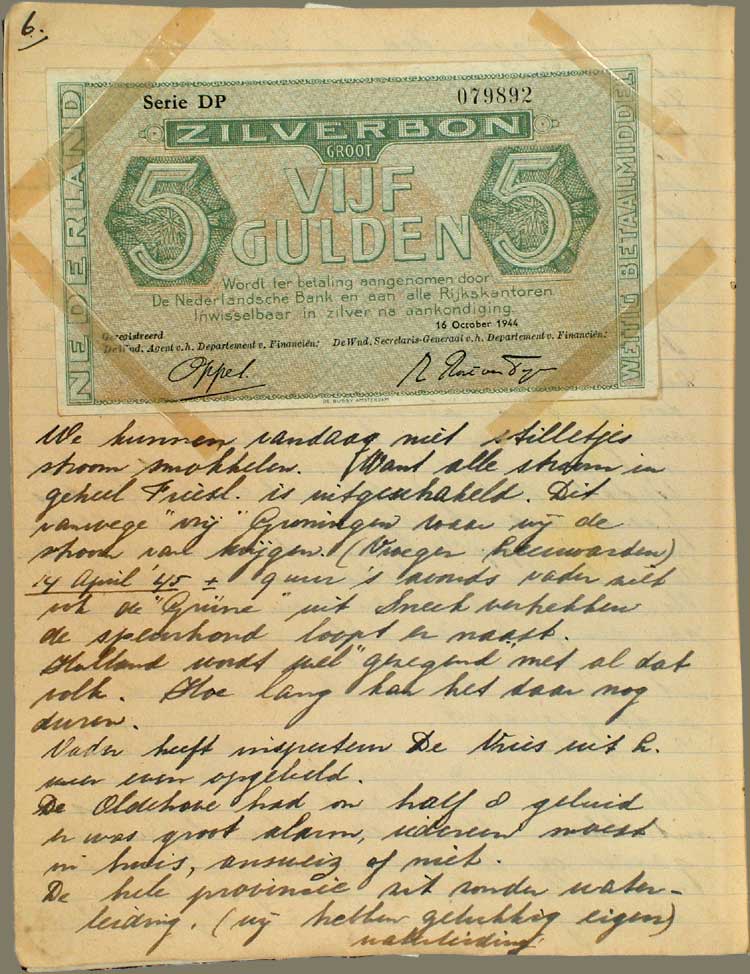 6.
Serie DP
079892
ZILVERBON
GROOT
NEDERLAND
5
VIJF
GULDEN
5
WETTIG BETAALMIDDEL
Wordt ter betaling aangenomen door
De Nederlandsche Bank en aan alle Rijkskantoren
Inwisselbaar in zilver na aankondiging.
16 October 1944
Geregistreerd
De Wnd. Agent v.h. Departement v. Financiën:
De Wnd. Secretaris-Generaal v.h. Departement v. Financiën:
Oppel.
DE BUSSY AMSTERDAM
We kunnen vandaag niet stilletjes
stroom smokkelen. (Want alle stroom in
geheel Friesl. is uitgeschakeld. Dit
vanwege "vrij" Groningen waar wij de
stroom van krijgen. (Vroeger Leeuwarden)
14 April '45 ± 9 uur 's avonds vader ziet
ook de "Grüne" uit Sneek vertrekken
de speurhond loopt er naast.
Holland wordt wel "gezegend" met al dat
volk. Hoe lang kan het daar nog
duren.
Vader heeft inspecteur De Vries uit L.
weer even opgebeld.
De Oldehove had om half 8 geluid
er was groot alarm, iedereen moest
in huis, ausweiz of niet.
De hele provincie zit zonder water-
leiding. (wij hebben gelukkig eigen)
waterleiding.